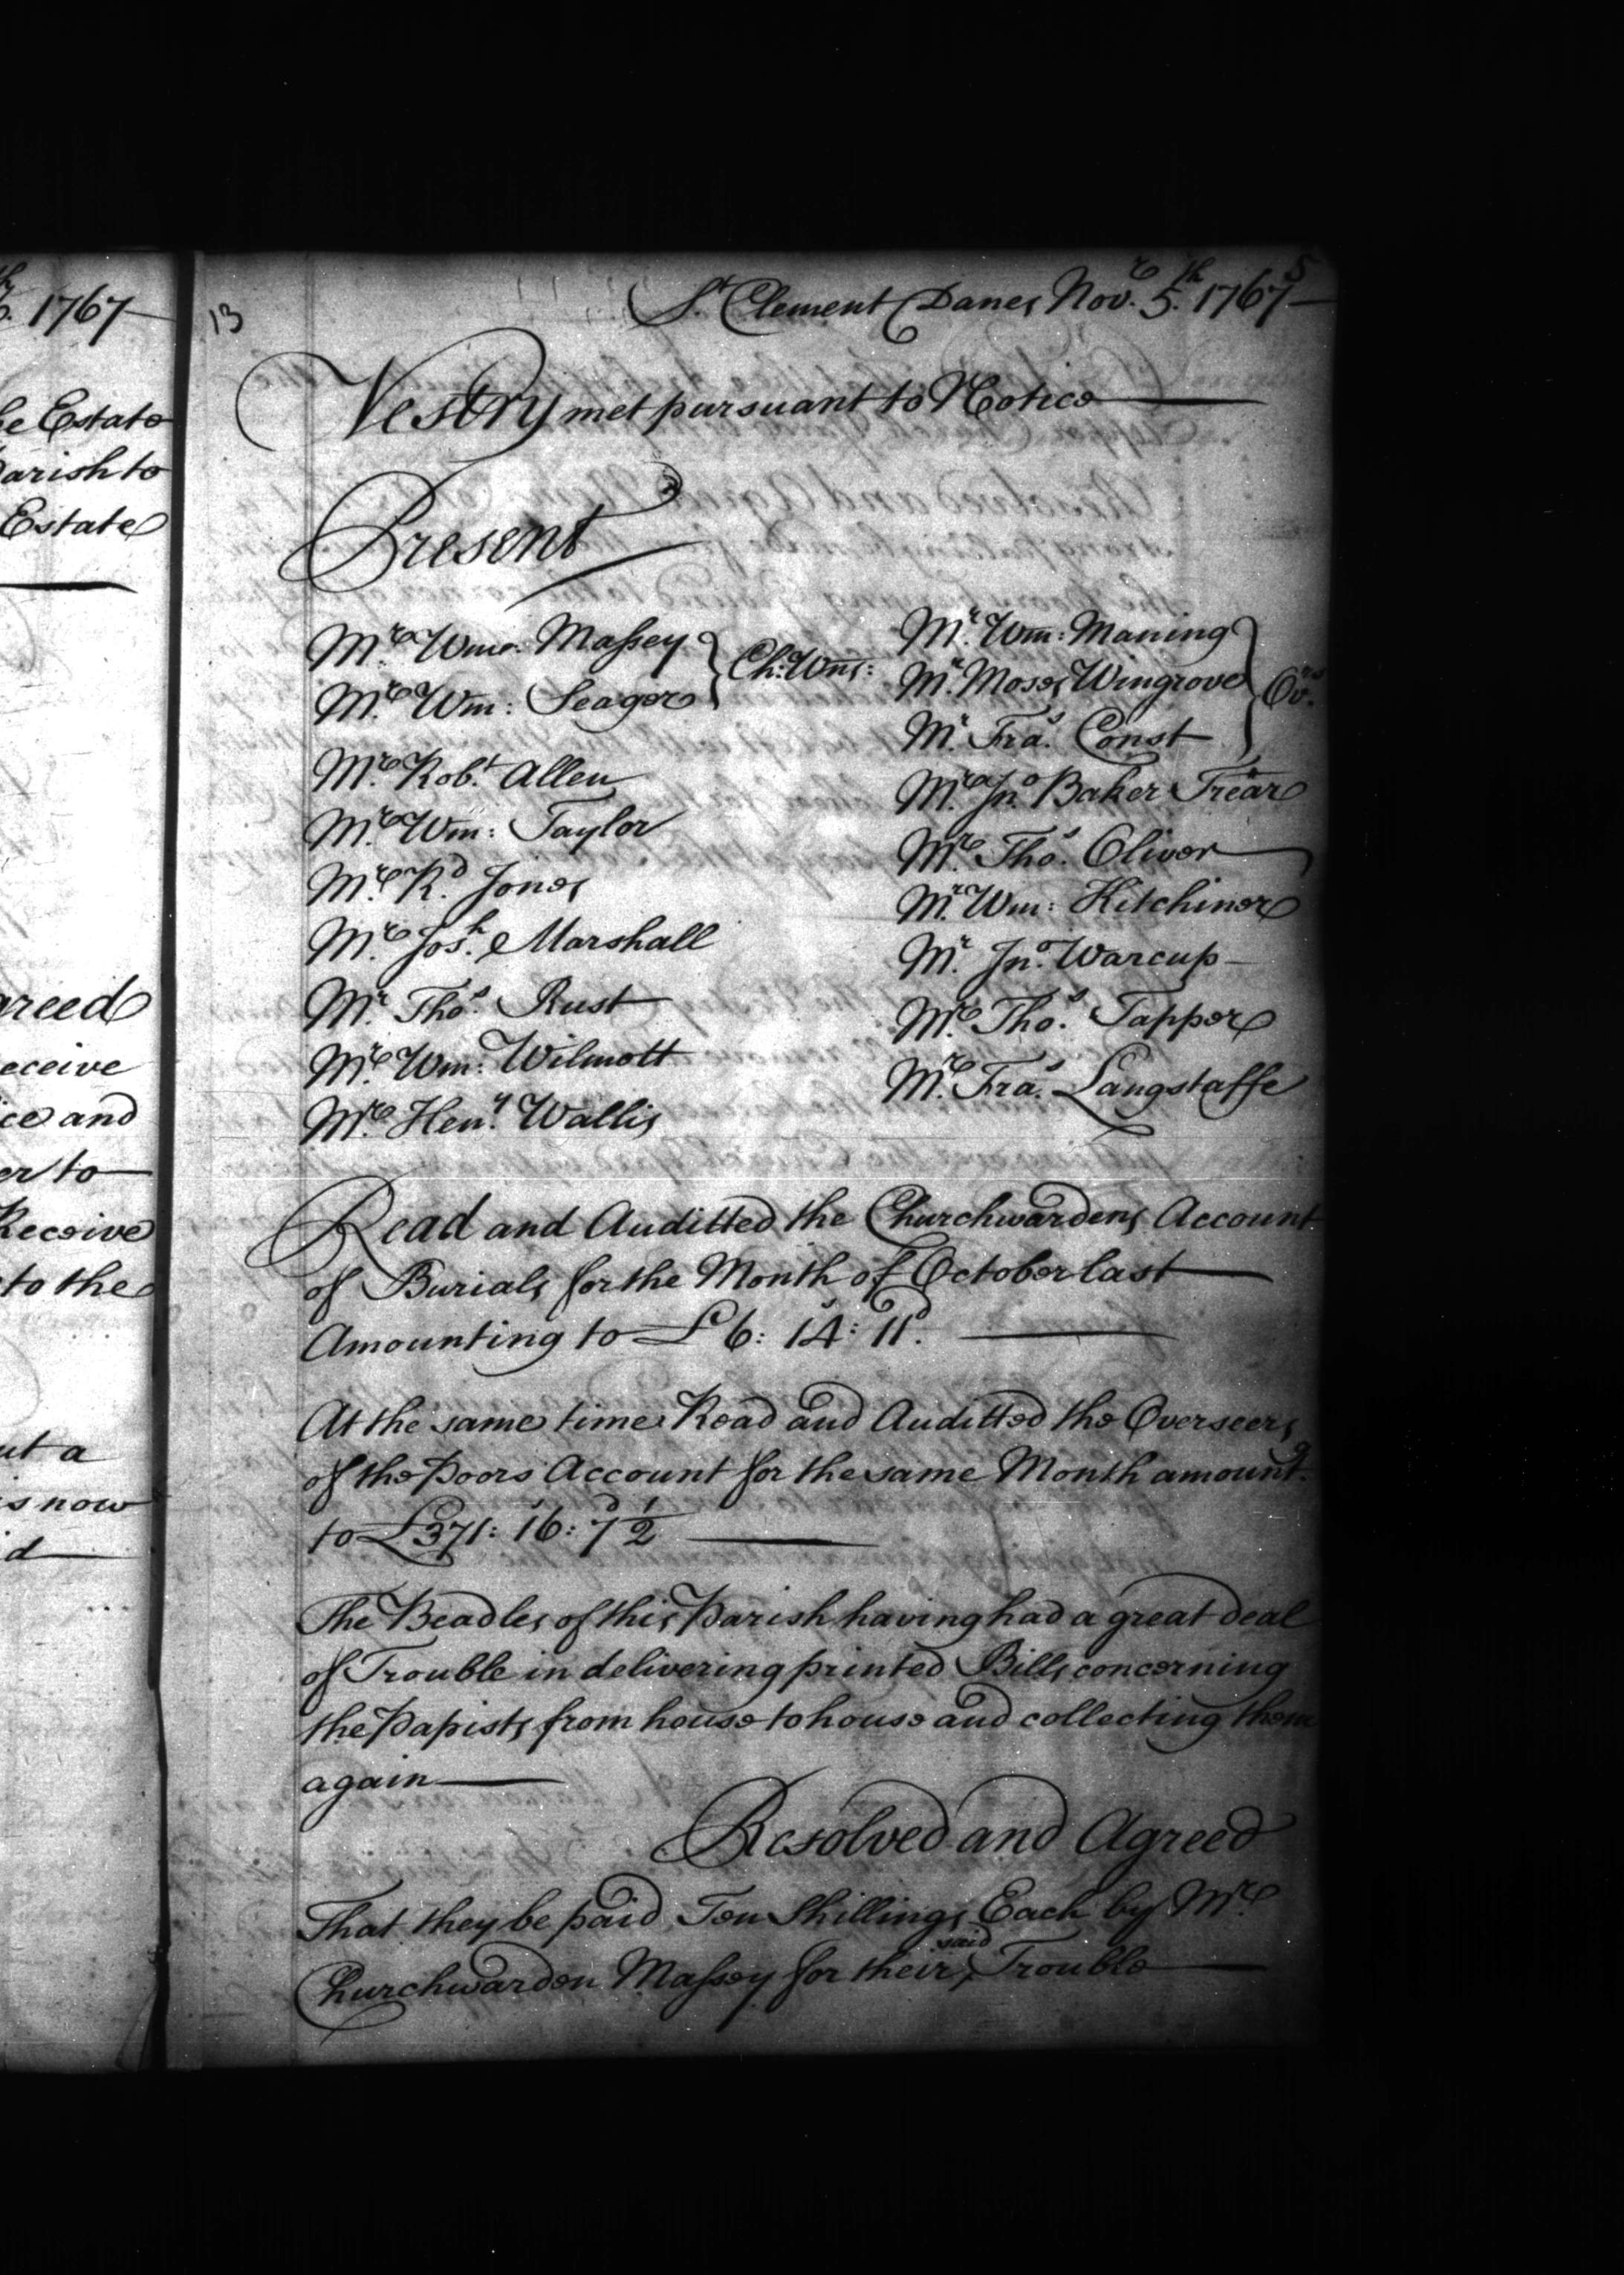 . 1767
e Estate
arish to
Estate
greed
eceive
ce and
er to
Receive
to the
ut a
s now
d
5
13
St. Clement Danes Novr. 5th. 1767
Vestry met pursuant to Notice
Present
Mr. Wm. Massey
Mr. Wm: Seager
Ch: Wns:
Mr. Robt. Allen
Mr. Wm: Taylor
Mr. Rd. Jones
Mr. Josh. Marshall
Mr. Thos. Rust
Mr. Wm: Wilmott
Mr. Heny. Wallis
Mr. Wm: Maning
Mr. Moses Wingrove
Mr. Fras. Const
Ovrs.
Mr. Jno. Baker Trear
Mr. Thos. Oliver
Mr. Wm: Kitchiner
Mr. Jno. Warcup
Mr. Thos. Tapper
Mr. Fras. Langstaffe
Read and Auditted the Churchwardens Account
of Burials for the Month of October last
Amounting to £6: 14s: 11d.
At the same time Read and Auditted the Overseers
of the Poors Account for the same Month amountg.
to £371: 16s: 7d½
The Beadles of this Parish having had a great deal
of Trouble in delivering printed Bills concerning
the Papists from house to house and collecting them
again
Resolved and Agreed
That they be paid Ten Shillings Each by Mr.
Churchwarden Massey for their said Trouble